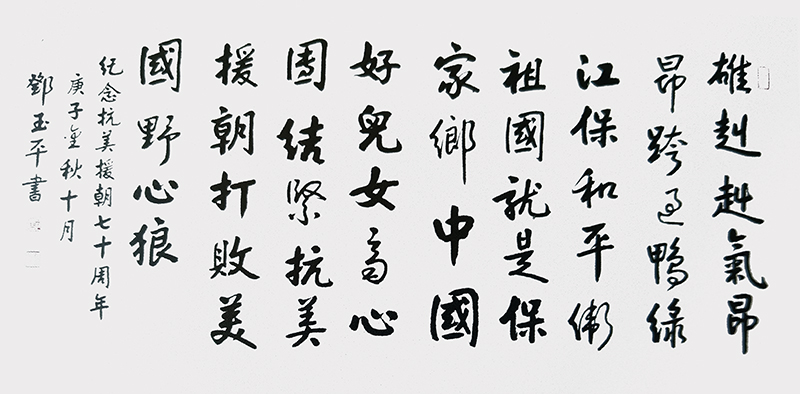 雄赳赳氣昂
昂跨过鴨緑
江保和平衛
祖國就是保
家鄉中國
好兒女齐心
團結緊抗美
援朝打敗美
國野心狼
纪念抗美援朝七十周年
庚子金秋十月
鄧玉平書